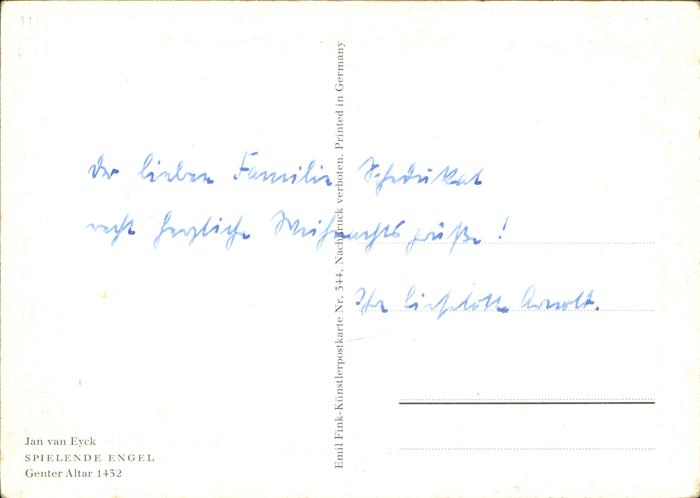 der lieben Familie Schedukat
recht herzliche Weihnachtsgrüße!
Ihre Liselotte Arnold.
Jan van Eyck
SPIELENDE ENGEL
Genter Altar 1432
Emil Fink-Künstlerpostkarte Nr. 544. Nachdruck verboten. Printed in Germany